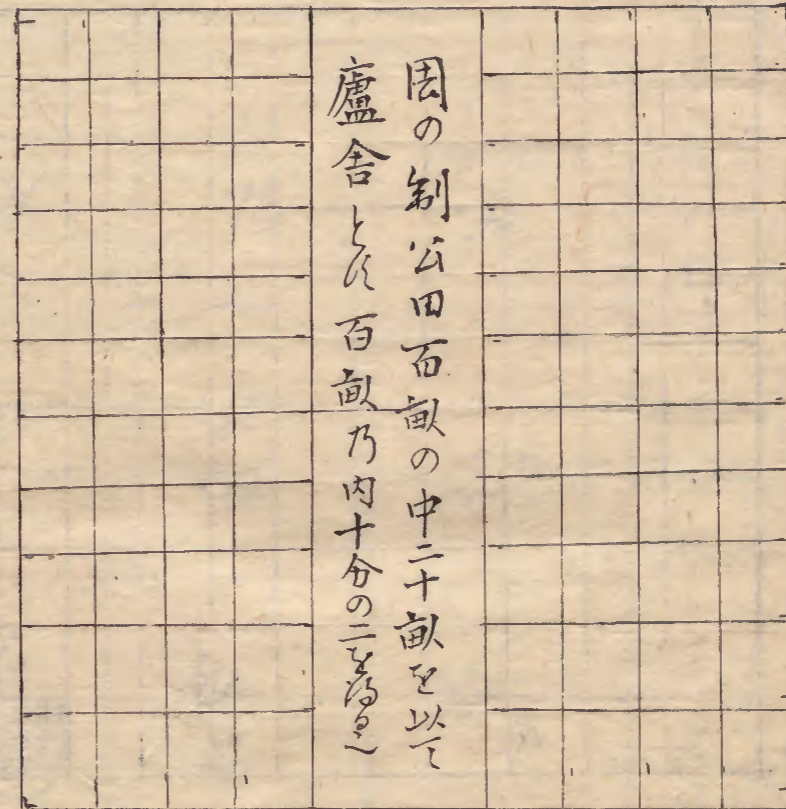 周の制公田百畝の中二十畝を以て
廬舎とす百畝乃内十分の二を得る也